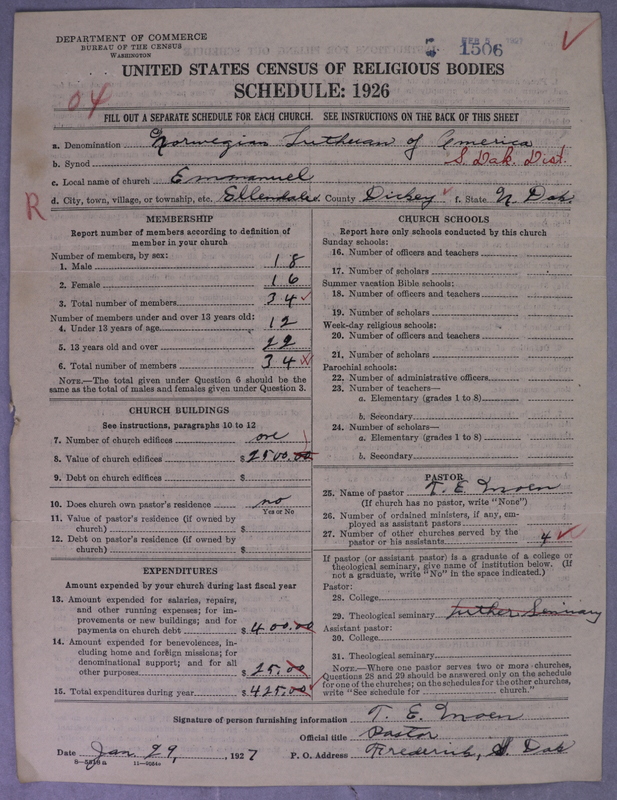 DEPARTMENT OF COMMERCE
BUREAU OF THE CENSUS
WASHINGTON
FEB 5 1927
1506
UNITED STATES CENSUS OF RELIGIOUS BODIES
SCHEDULE: 1926
04
FILL OUT A SEPARATE SCHEDULE FOR EACH CHURCH. SEE INSTRUCTIONS ON THE BACK OF THIS SHEET
a. Denomination Norwegian Lutheran of America
b. Synod S. Dak. Dist.
c. Local name of church Emmanuel
R
d. City, town, village, or township, etc. Ellendale County Dickey f. State N. Dak.
MEMBERSHIP
Report number of members according to definition of member in your church
Number of members, by sex:
1. Male 18
2. Female 16
3. Total number of members 34
Number of members under and over 13 years old:
4. Under 13 years of age 12
5. 13 years old and over 22
6. Total number of members 34
NOTE.—The total given under Question 6 should be the
same as the total of males and females given under Question 3.
CHURCH BUILDINGS
See instructions, paragraphs 10 to 12
7. Number of church edifices one
8. Value of church edifices $ 2500.00
9. Debt on church edifices $
10. Does church own pastor's residence? no
Yes or No
11. Value of pastor's residence (if owned by
church) $
12. Debt on pastor's residence (if owned by
church) $
EXPENDITURES
Amount expended by your church during last fiscal year
13. Amount expended for salaries, repairs,
and other running expenses; for im-
provements or new buildings; and for
payments on church debt $ 400.00
14. Amount expended for benevolences, in-
cluding home and foreign missions; for
denominational support; and for all
other purposes $ 25.00
15. Total expenditures during year $ 425.00
CHURCH SCHOOLS
Report here only schools conducted by this church
Sunday schools:
16. Number of officers and teachers
17. Number of scholars
Summer vacation Bible schools:
18. Number of officers and teachers
19. Number of scholars
Week-day religious schools:
20. Number of officers and teachers
21. Number of scholars
Parochial schools:
22. Number of administrative officers
23. Number of teachers—
a. Elementary (grades 1 to 8)
b. Secondary
24. Number of scholars—
a. Elementary (grades 1 to 8)
b. Secondary
PASTOR
25. Name of pastor T. E. Moen
(If church has no pastor, write "None")
26. Number of ordained ministers, if any, em-
ployed as assistant pastors
27. Number of other churches served by the
pastor or his assistants 4
If pastor (or assistant pastor) is a graduate of a college or
theological seminary, give name of institution below. (If
not a graduate, write "No" in the space indicated.)
Pastor:
28. College
29. Theological seminary Luther Seminary
Assistant pastor:
30. College
31. Theological seminary
NOTE.—Where one pastor serves two or more churches,
Questions 28 and 29 should be answered only on the schedule
for one of the churches; on the schedules for the other churches,
write "See schedule for church."
Signature of person furnishing information T. E. Moen
Official title Pastor
Date Jan 29, 1927 P. O. Address Frederick, S. Dak